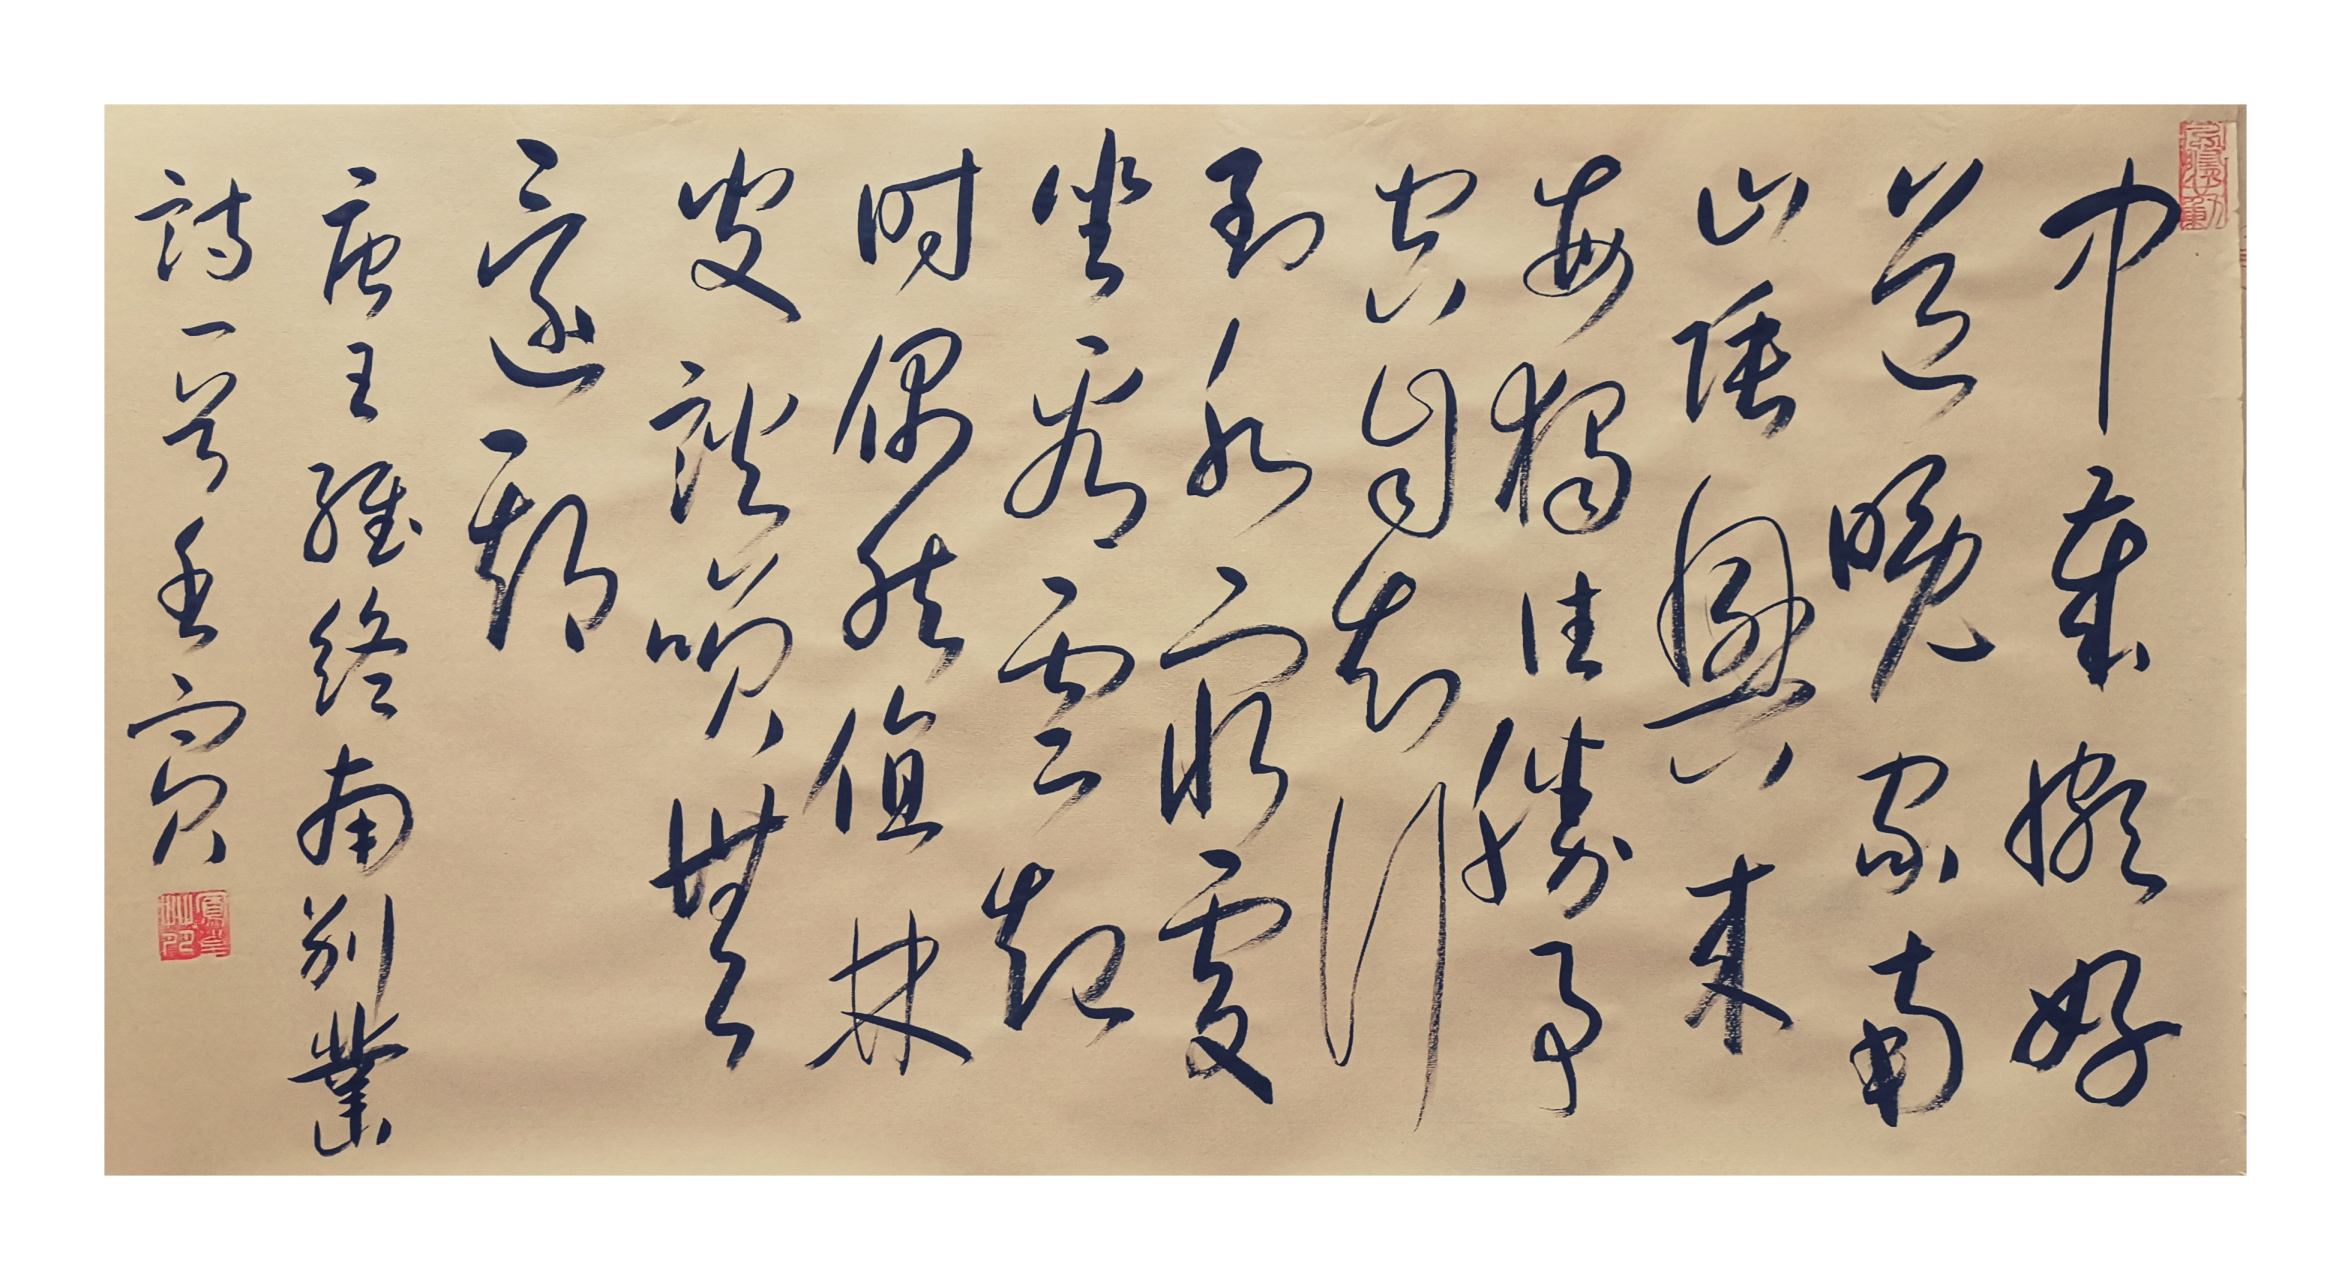 中歲頗好
道晚家南
山陲興來
每獨往勝事
空自知行
到水窮處
坐看雲起
時偶然值林
叟談笑無
還期
唐王維終南別業
詩一首